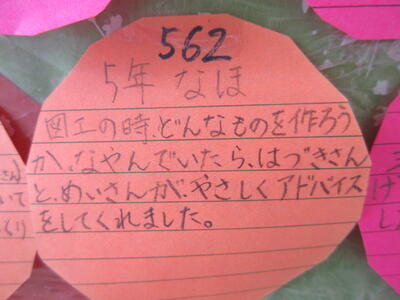 562
5年 なほ
図工の時、どんなものを作ろう
か、なやんでいたら、はづきさん
と、めいさんが、やさしくアドバイス
をしてくれました。
さん
いて
くり
げ